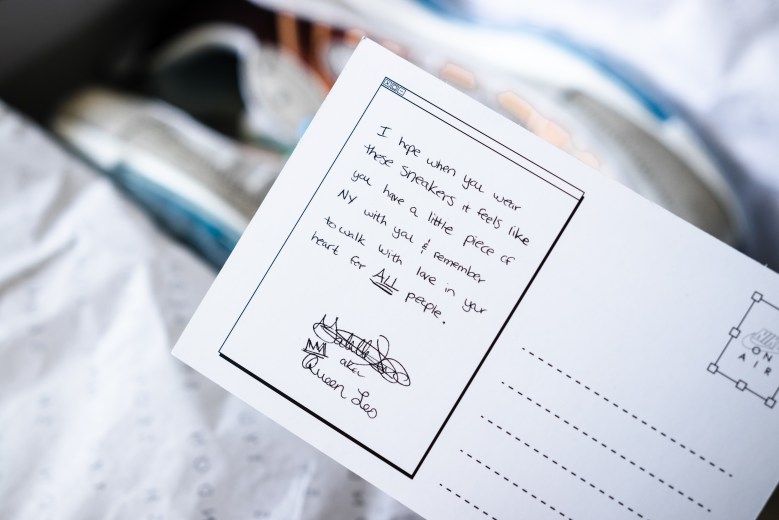 I hope when you wear
these sneakers it feels like
you have a little piece of
NY with you & remember
to walk with love in your
heart for ALL people.
aka
Queen Leo
ON
AIR